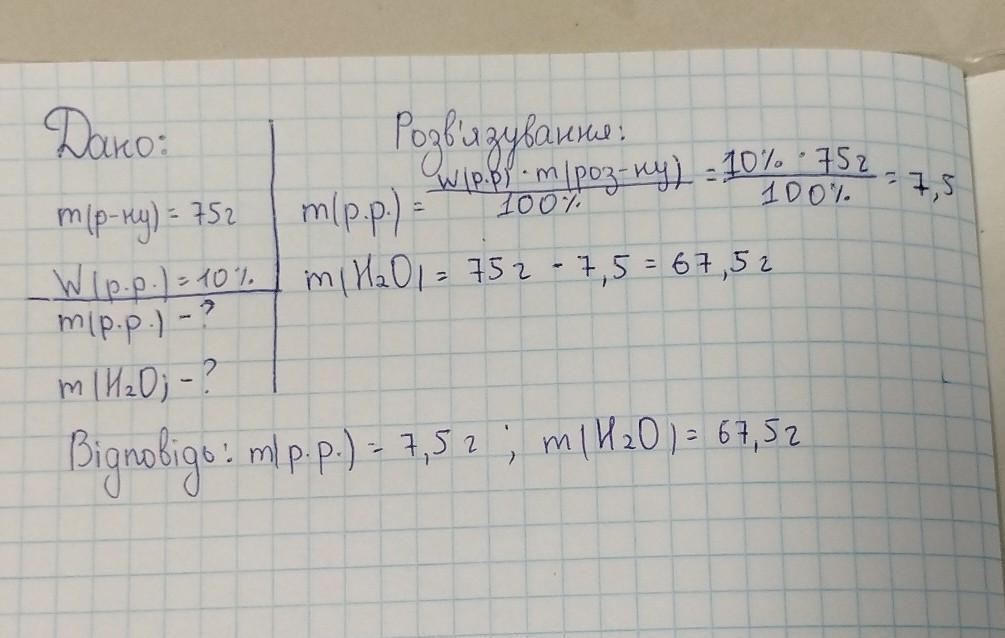 Дано:
m(р-ну) = 75г
W(р.р.) = 10%
m(р.р.) - ?
m(H₂O) - ?
Розв'язування:
m(р.р.) = W(р.р) · m(роз-ну) / 100% = 10% · 75г / 100% = 7,5
m(H₂O) = 75г - 7,5 = 67,5г
Відповідь: m(р.р.) = 7,5г ; m(H₂O) = 67,5г